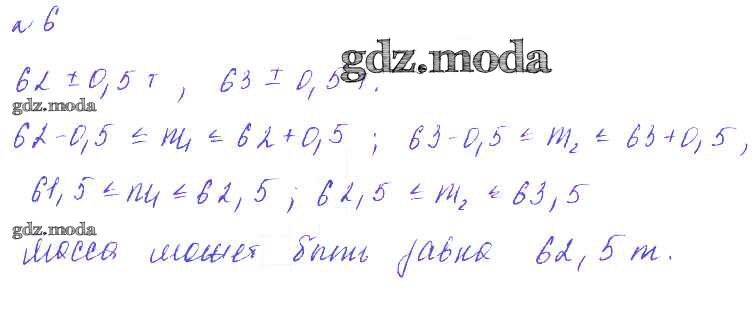 № 6
gdz.moda
62 ± 0,5 т , 63 ± 0,5 т.
gdz.moda
62-0,5 ≤ m₁ ≤ 62+0,5 ; 63-0,5 ≤ m₂ ≤ 63+0,5 ,
61,5 ≤ m₁ ≤ 62,5 ; 62,5 ≤ m₂ ≤ 63,5
gdz.moda
Масса может быть равна 62,5 т.